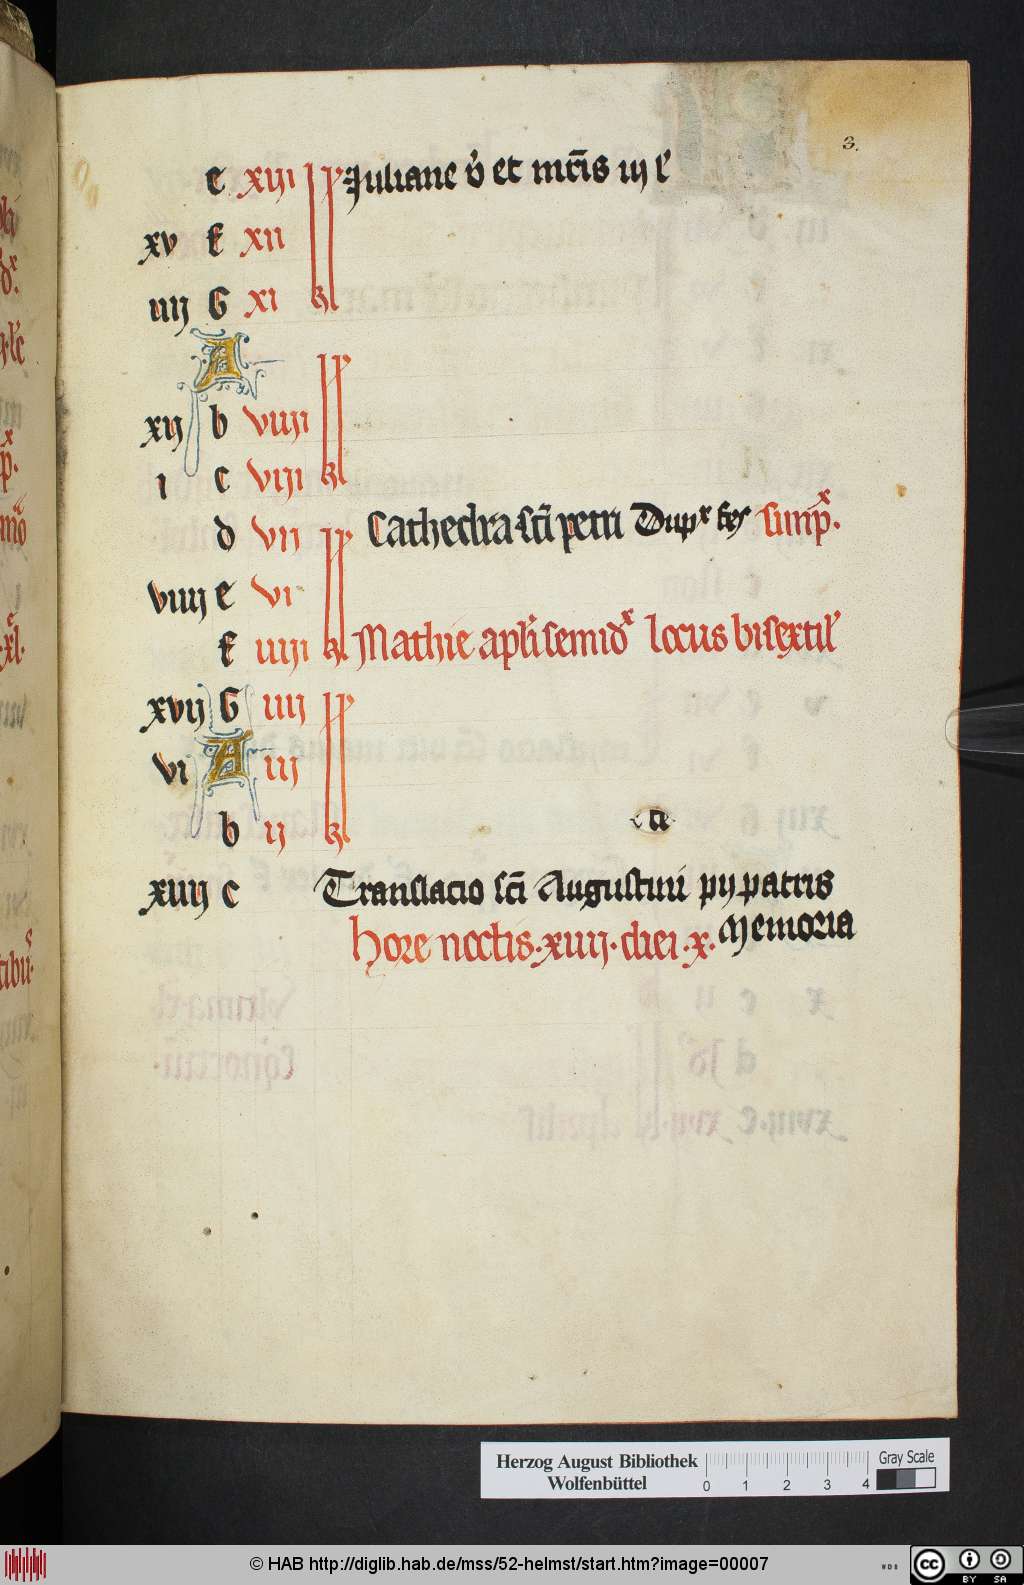 3.
e xiij kl Juliane v̓ et mr̄is iij l'
xv f xii
iiij G xi
A
xij b viiij
i c viij kl
d vii Cathedra sc̄i petri Dupˣ fes sunpˣ.
viiij e vi
f iiiij kl Mathie apl'i semidˣ locus bisextil'
xvij G iiij
vi A iij
b ij kl
xiiij c Translacio sc̄i Augustini pij patris
Memoria
hore noctis·xiiij·diei·x·
Herzog August Bibliothek
Wolfenbüttel
0 1 2 3 4
Gray Scale
© HAB http://diglib.hab.de/mss/52-helmst/start.htm?image=00007
WDB
cc BY SA